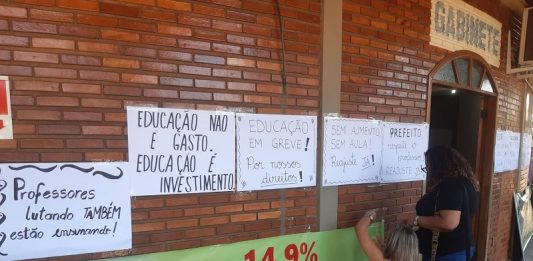 GABINETE
Professores
lutando TAMBÉM
estão ensinando!
EDUCAÇÃO NÃO
E GASTO.
EDUCAÇÃO É
INVESTIMENTO
EDUCAÇÃO
EM GREVE!
Por nossos
direitos!
SEM AUMENTO
SEM AULA!
Reajuste JÁ!
PREFEITO
respeite o
professor
REAJUSTE JÁ
14,9%